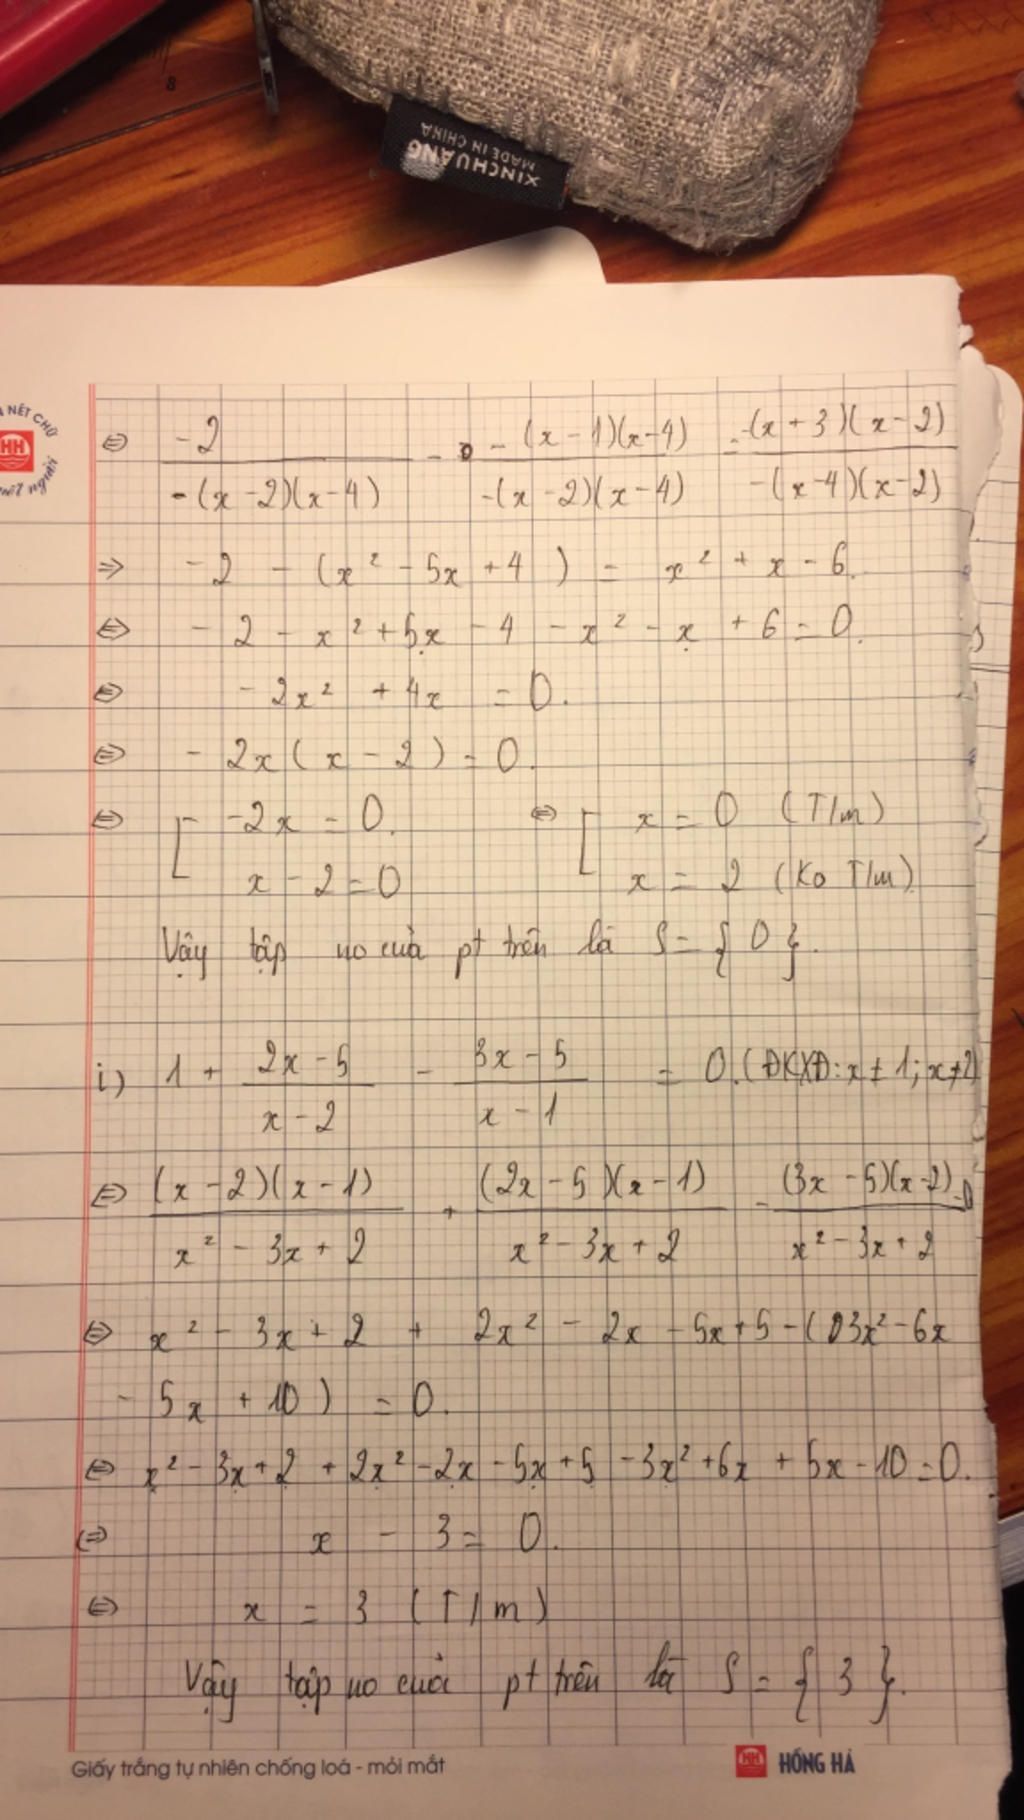 XINCHUANG
MADE IN CHINA
8
NÉT CHỮ
HH
người
⇔ -2 / -(x-2)(x-4) - -(x-1)(x-4) / -(x-2)(x-4) = -(x+3)(x-2) / -(x-4)(x-2)
⇒ -2 - (x² - 5x + 4) = x² + x - 6.
⇔ -2 - x² + 5x - 4 - x² - x + 6 = 0.
⇔ -2x² + 4x = 0.
⇔ -2x(x - 2) = 0.
⇔ [ -2x = 0. ⇔ [ x = 0 (T/m)
x - 2 = 0 x = 2 (Ko T/m)
Vậy tập no của pt trên là S = { 0 }.
i) 1 + 2x - 5 / x - 2 - 3x - 5 / x - 1 = 0. (ĐKXĐ: x ≠ 1; x ≠ 2)
⇔ (x-2)(x-1) / x² - 3x + 2 + (2x-5)(x-1) / x² - 3x + 2 - (3x-5)(x-2) / x² - 3x + 2 = 0
⇔ x² - 3x + 2 + 2x² - 2x - 5x + 5 - (3x² - 6x
- 5x + 10) = 0.
⇔ x² - 3x + 2 + 2x² - 2x - 5x + 5 - 3x² + 6x + 5x - 10 = 0.
⇔ x - 3 = 0.
⇔ x = 3 (T/m)
Vậy tập no của pt trên là S = { 3 }.
Giấy trắng tự nhiên chống loá - mỏi mắt
HH HỒNG HÀ